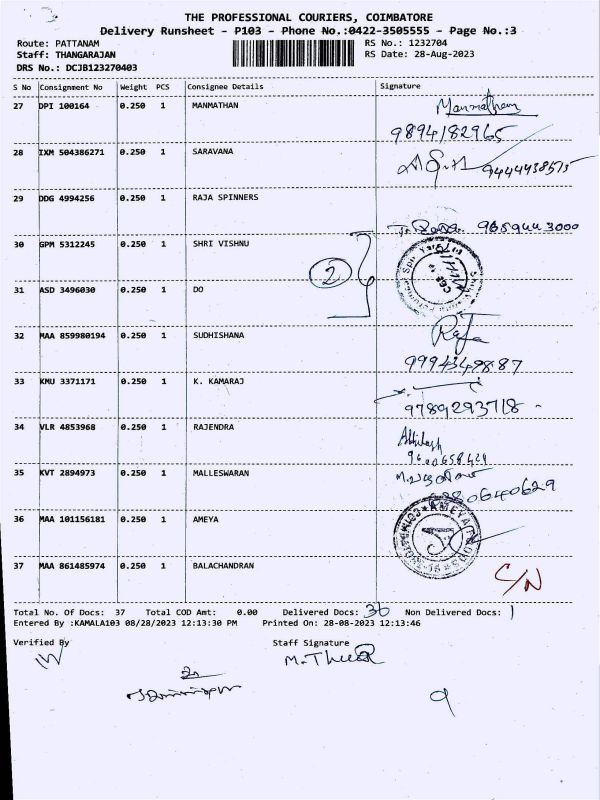 THE PROFESSIONAL COURIERS, COIMBATORE
Delivery Runsheet - P103 - Phone No.:0422-3505555 - Page No.:3
Route: PATTANAM RS No.: 1232704
Staff: THANGARAJAN RS Date: 28-Aug-2023
DRS No.: DCJB123270403
S No Consignment No Weight PCS Consignee Details Signature
27 DPI 100164 0.250 1 MANMATHAN Manmatham
9894182965
28 IXM 504386271 0.250 1 SARAVANA 9444438515
29 DDG 4994256 0.250 1 RAJA SPINNERS
9689443000
30 GPM 5312245 0.250 1 SHRI VISHNU
2
31 ASD 3496030 0.250 1 DO
32 MAA 859980194 0.250 1 SUDHISHANA Raja
9994349887
33 KMU 3371171 0.250 1 K. KAMARAJ
9789293718
34 VLR 4853968 0.250 1 RAJENDRA
9600658429
35 KVT 2894973 0.250 1 MALLESWARAN
36 MAA 101156181 0.250 1 AMEYA AMEYA
37 MAA 861485974 0.250 1 BALACHANDRAN C/N
Total No. Of Docs: 37 Total COD Amt: 0.00 Delivered Docs: 36 Non Delivered Docs: 1
Entered By :KAMALA103 08/28/2023 12:13:30 PM Printed On: 28-08-2023 12:13:46
Verified By Staff Signature
9